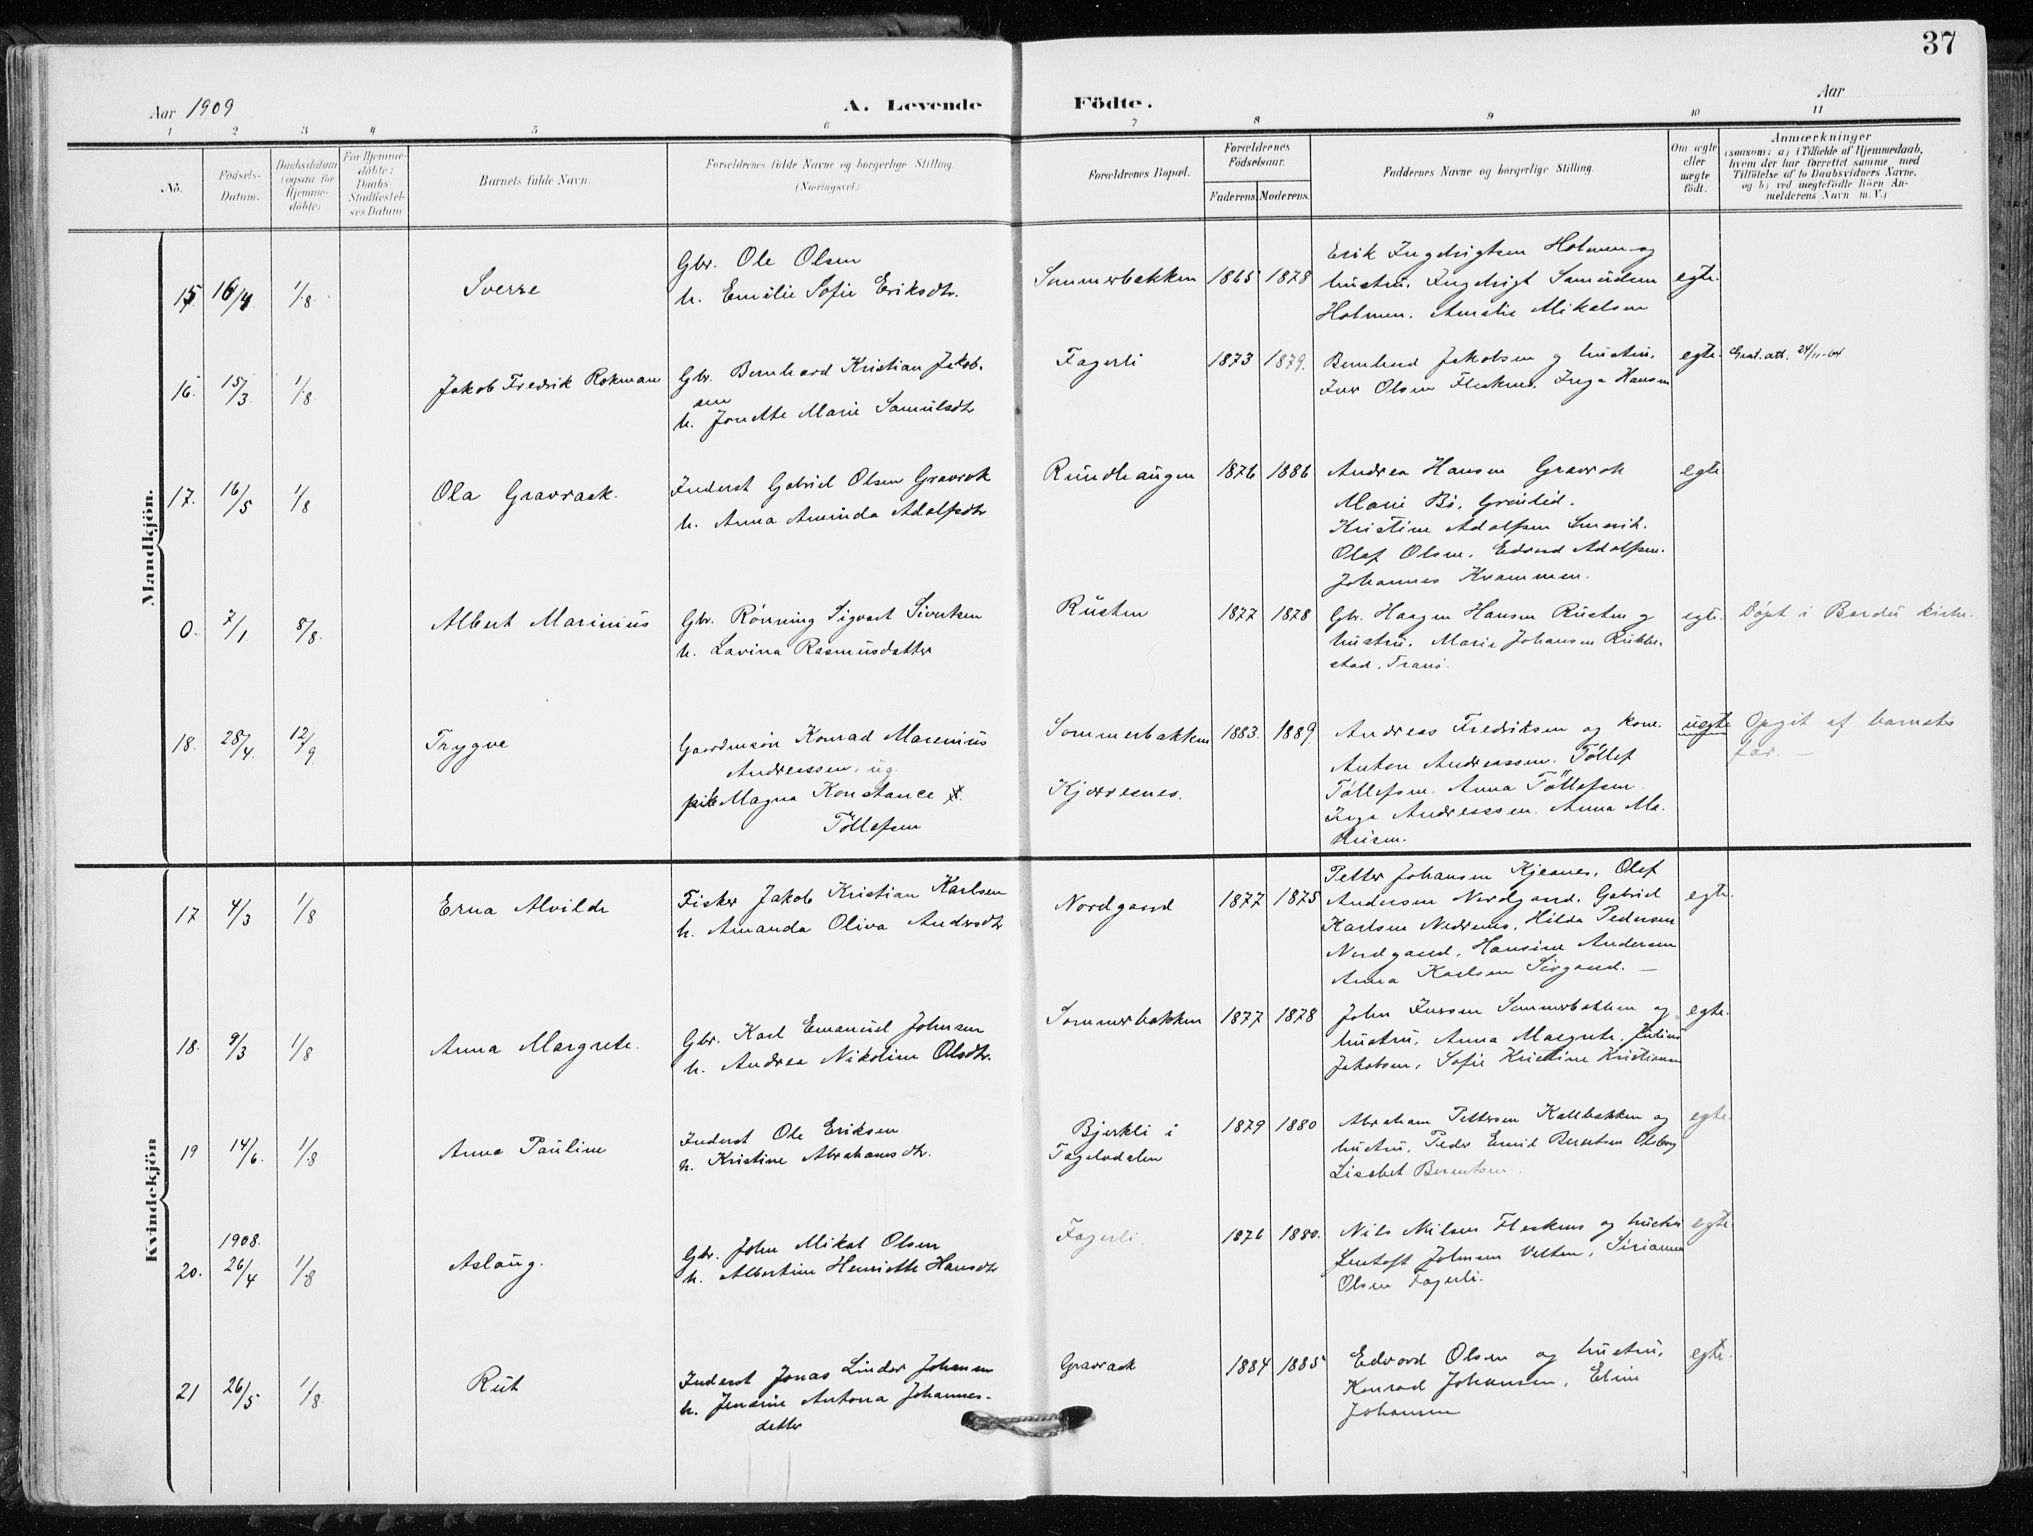 37
Aar 1909
A. Levende Födte.
Aar
1 2 3 4 5 6 7 8 9 10 11
No.
Födsels-Datum.
Daabsdatum (ogsaa for Hjemme-döbte)
For Hjemme-döbte: Daabs-Stadfæstel-ses Datum
Barnets fulde Navn.
Forældrenes fulde Navne og borgerlige Stilling. (Næringsvei.)
Forældrenes Bopæl.
Forældrenes Födselsaar.
Faderens. Moderens.
Faddernes Navne og borgerlige Stilling.
Om ægte eller uægte födt.
Anmærkninger
(saasom: a) i Tilfælde af Hjemmedaab,
hvem der har forrettet samme, med
Tilföielse af to Daabsvidners Navne,
og b) ved uægtefödte Börn An-
melderens Navn m. V.)
Mandkjön.
15 16/4 1/8 Sverre
Gbr. Ole Olsen
h. Emilie Sofie Eriksdtr.
Sommerbakken 1865 1878
Erik Ingebrigtsen Holmen og
hustru, Ingebrigt Samuelsen
Holmen. Amalie Mikalsen
egte.
16. 15/3 1/8 Jakob Fredrik Rokman
Gbr. Bernhard Kristian Jakob-
sen
h. Jonette Marie Samulsdtr
Fagerli 1873 1879.
Bernhard Jakobsen og hustru,
Iver Olsen Flesknes, Inga Hansen
egte. 24/11-64
17. 16/5 1/8 Ola Gravrack.
Inderst Gabriel Olsen Gravrok
h. Anna Aminda Adolfsdtr
Rundhaugen 1876 1886
Andrea Hansen Gravrok
Marie Bö, Grönlid.
Kristine Adolfsen
Olaf Olsen. Edvard Adolfsen.
Johannes Kvammen.
egte
0. 7/1 8/8 Albert Marinius
Gbr. Rönning Sigvart Sivertsen
h. Lavina Rasmusdatter
Rusten 1877 1878
Gbr. Haagen Hansen Rusten og
hustru. Marie Johansen Rubbe-
stad, Tranö.
egte. Döpt i Bardu kirke.
18. 28/4 12/9 Trygve
Gaardmsön Konrad Marenius
Andreassen, ug.
pike Magna Konstance
Töllefsen
Sommerbakken
Kjerresnes.
1883. 1889.
Andreas Fredriksen og kone.
Anton Andreassen. Töllef
Töllefsen. Anna Töllefsen
Inga Andreassen. Anna Ma-
thisen.
uegte Opgit af barnets
far. —
Kvindekjön
17 4/3 1/8 Erna Alvilde
Fisker Jakob Kristian Karlsen
h. Amanda Oliva Andrsdtr
Nordgaard 1877 1875
Petter Johansen Kjesnes, Olaf
Andersen Nordgaard. Gabriel
Karlsen Nedrenes, Hilda Pedersen
Nordgaard, Hansine Andersen
Anna Karlsen Sörgaard. —
egte.
18. 9/3 1/8 Anna Margrete.
Gbr. Karl Emanuel Johnsen
h. Andrea Nikoline Olsdtr.
Sommerbakken 1877 1878
John Iversen Sommerbakken og
hustru, Anna Margrete, Julius
Jakobsen, Sofie Kristine Kristiansen
egte.
19 14/6. 1/8 Anna Pauline
Inderst Ole Eriksen
h. Kristine Abrahamsdtr.
Bjerkli i
Fagerlidalen
1879 1880
Abraham Pettersen Kalvbakken og
hustru, Peder Emil Berntsen Olsborg
Lisabet Berentsen.
egte
20. 1908. 26/4 1/8 Aslaug.
Gbr. John Mikal Olsen
h. Albertine Henriette Hansdtr
Fagerli. 1876 1880.
Nils Nilsen Fleskens og hustru
Johnsen Velten,
Olsen Fagerli.
egte
21 26/5 1/8 Rut
Inderst Jonas Linder Johansen
h. Jensine Antona Johannes-
detter
Gravrack 1884 1885
Edvard Olsen og hustru,
Konrad Johansen, Eline
Johansen
egte.